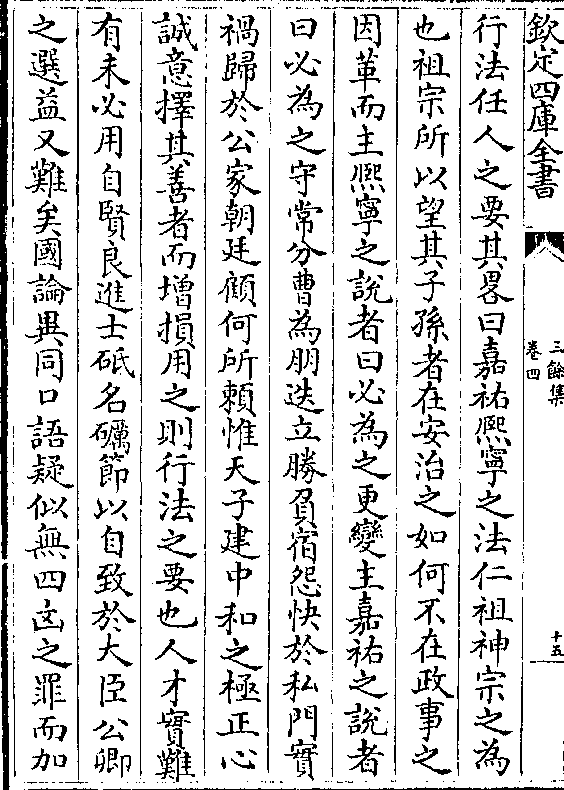 欽定四庫全書
三餘集
卷四
十五
行法任人之要其畧曰嘉祐熈寧之法仁祖神宗之為
也祖宗所以望其子孫者在安治之如何不在政事之
因革而主熈寧之說者曰必為之更變主嘉祐之說者
曰必為之守常分曹為朋迭立勝負宿怨快於私門實
禍歸於公家朝廷顧何所賴惟天子建中和之極正心
誠意擇其善者而增損用之則行法之要也人才實難
有未必用自賢良進士砥名礪節以自致於大臣公卿
之選益又難矣國論異同口語疑似無四凶之罪而加